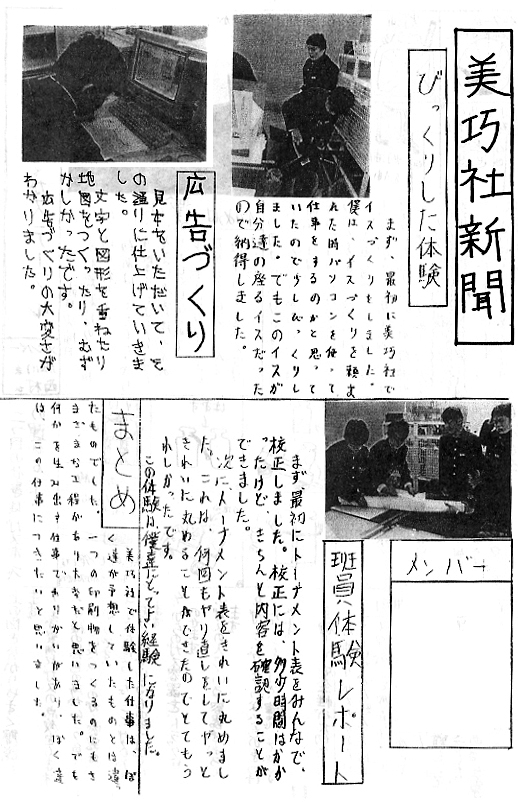 美巧社新聞
びっくりした体験
まず、最初に美巧社で
イスづくりをしました。
僕は、イスづくりを頼ま
れた時パソコンを使って
仕事をするのかと思って
いたので少しびっくりし
ました。でもこのイスが
自分達の座るイスだった
ので納得しました。
広告づくり
見本をいただいて、そ
の通りに仕上げていきま
した。
文字と図形を重ねたり
地図をつくったり、むず
かしかったです。
広告づくりの大変さが
わかりました。
メンバー
班員体験レポート
まず最初にトーナメント表をみんなで、
校正しました。校正には、多少時間はかか
ったけど、きちんと内容を確認することが
できました。
次に、トーナメント表をきれいに丸めまし
た。これは、何回もやり直しをしてやっと
きれいに丸めることができたのでとてもう
れしかったです。
この体験は、僕達にとってよい経験になりました。
まとめ
美巧社で体験した仕事は、ぼ
く達が予想していたものとは違
たものでした。一つの印刷物をつくるのにもさ
まざまな工程があり大変だと思いました。でも
何かを生み出す仕事でありがいがあり、ぼく達
は、この仕事につきたいと思いました。